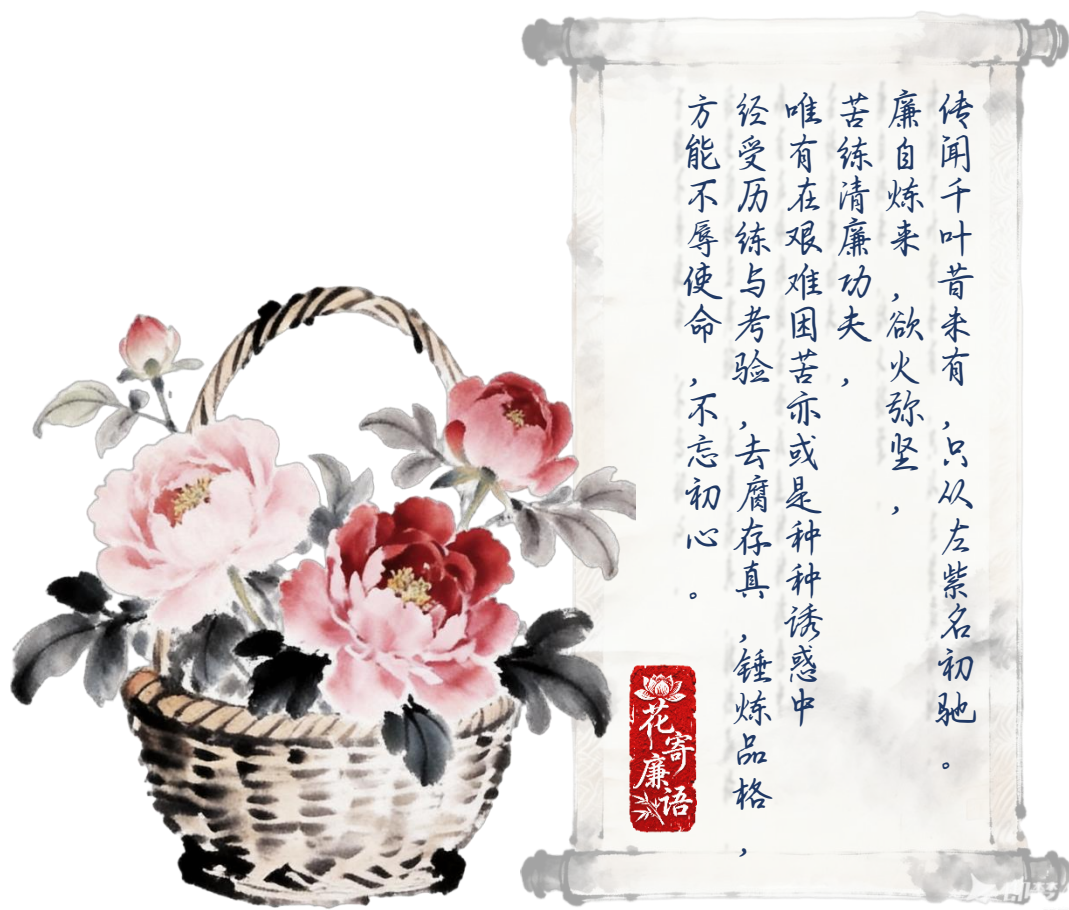 传闻千叶昔未有,只从左紫名初驰。
廉自炼来,欲火弥坚,
苦练清廉功夫,
唯有在艰难困苦亦或是种种诱惑中
经受历练与考验,去腐存真,锤炼品格,
方能不辱使命,不忘初心。
花寄廉语